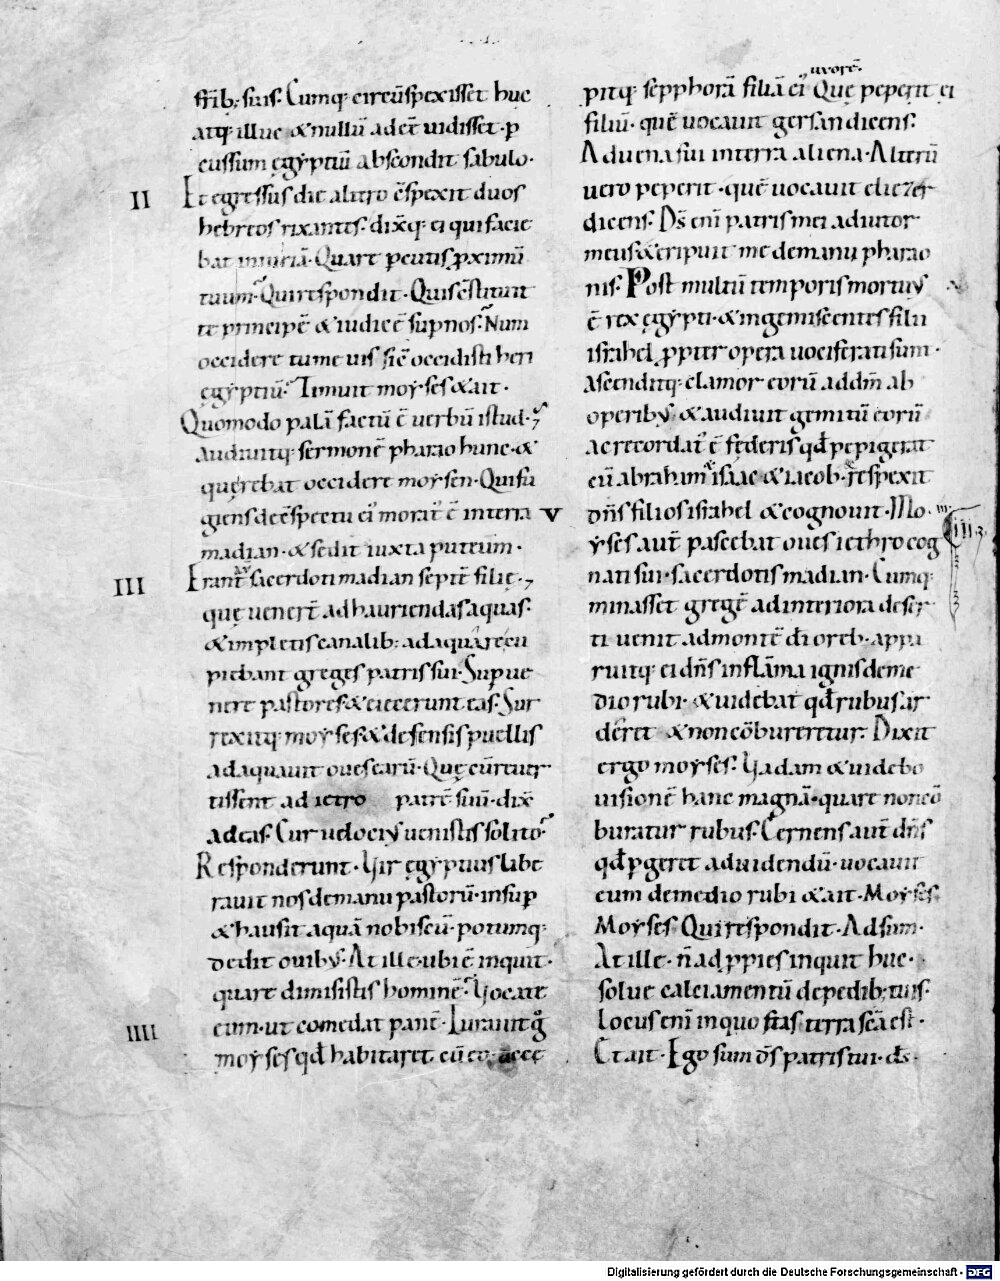 frib; suis. Cumq; circūspexisset huc
atq; illuc & nullū adeē uidisset· p
cussum ęgyptiū abscondit sabulo·
II
Et egressus die altro cspexit duos
hebreos rixantes. dixq; ei qui facie
bat iniuriā· Quare pcutis pximū
tuum? Qui respondit· Quis te stituit
te principē & iudicē sup nos? Num
occidere tu me uis sic occidisti heri
ęgyptiū? Timuit moyses & ait·
Quomodo palā factū ē uerbū istud·?
audiuitq; sermonē pharao hunc· &
querebat occidere moysen· Qui fu
giens de cspectu ei' morat' ē in terra
madian· & sedit iuxta puteum·
III
Erant aū sacerdoti madian septē filię·
quę uenerē ad hauriendas aquas·
& impletis canalib; adaquare cu
piebant greges patris sui· Supue
nere pastores & eiecerunt eas· Sur
rexitq; moyses & defensis puellis
adaquauit oues earū· Quę cū reuer
tissent ad ietro patrē suū· dix
ad eas· Cur uelociy uenistis solito?
Responderunt· Vir ęgyptius libe
rauit nos de manu pastorū· insup
& hausit aquā nobiscū· potumq;
dedit ouiby· At ille· ubi ē inquit·
quare dimisistis hominē? Vocate
IIII
eum· ut comedat panē· Iurauit g
moyses qđ habitaret cū eo· accę
uxorē
pitq; sepphorā filiā ei' Quę peperit ei
filiū· quē uocauit gersan dicens·
Aduena fui in terra aliena· Alterū
uero peperit· quē uocauit eliezer
dicens· Ds enī patris mei adiutor
meus & eripuit me de manu pharao
nis· Post multū temporis mortuy
ē rex ęgypti· & ingemiscentes filii
israhel ppter opera uociferati sunt·
ascenditq; clamor eorū ad dm ab
operiby· & audiuit gemitū eorū
ac recordat' ē federis qđ pepigerat
cū abraham isaac & iacob· & respexit
V
dns filios israhel & cognouit· Mo·
yses aut pascebat oues iethro cog
nati sui· sacerdotis madian· Cumq;
minasset gregē ad interiora deser
ti uenit ad montē di oreb· appa
ruitq; ei dns in flāma ignis de me
dio rubi· & uidebat qđ rubus ar
deret & non cōbureretur· Dixit
ergo moyses· Vadam & uidebo
uisionē hanc magnā· quare non cō
buratur rubus· Cernens aut dns
qđ pgeret ad uidendū· uocauit
eum de medio rubi & ait· Moyses
Moyses· Qui respondit· Adsum·
At ille· n̄ adppies inquit huc·
solue calciamentū de pedib; tuis·
Locus enī in quo stas terra scā est·
Et ait· Ego sum ds patris tui· ds·
Digitalisierung gefördert durch die Deutsche Forschungsgemeinschaft - DFG